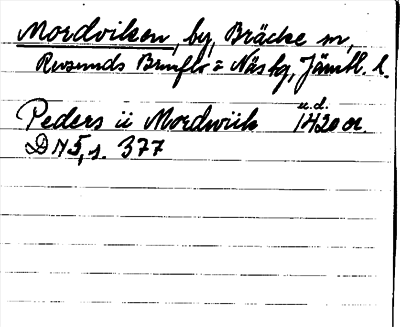 Mordviken, by, Bräcke sn,
Revsunds Brunflo o Näs tg, Jämtl. l.
Peders ii Mordwiik u.d. 1420 or.
DN 5, s. 377